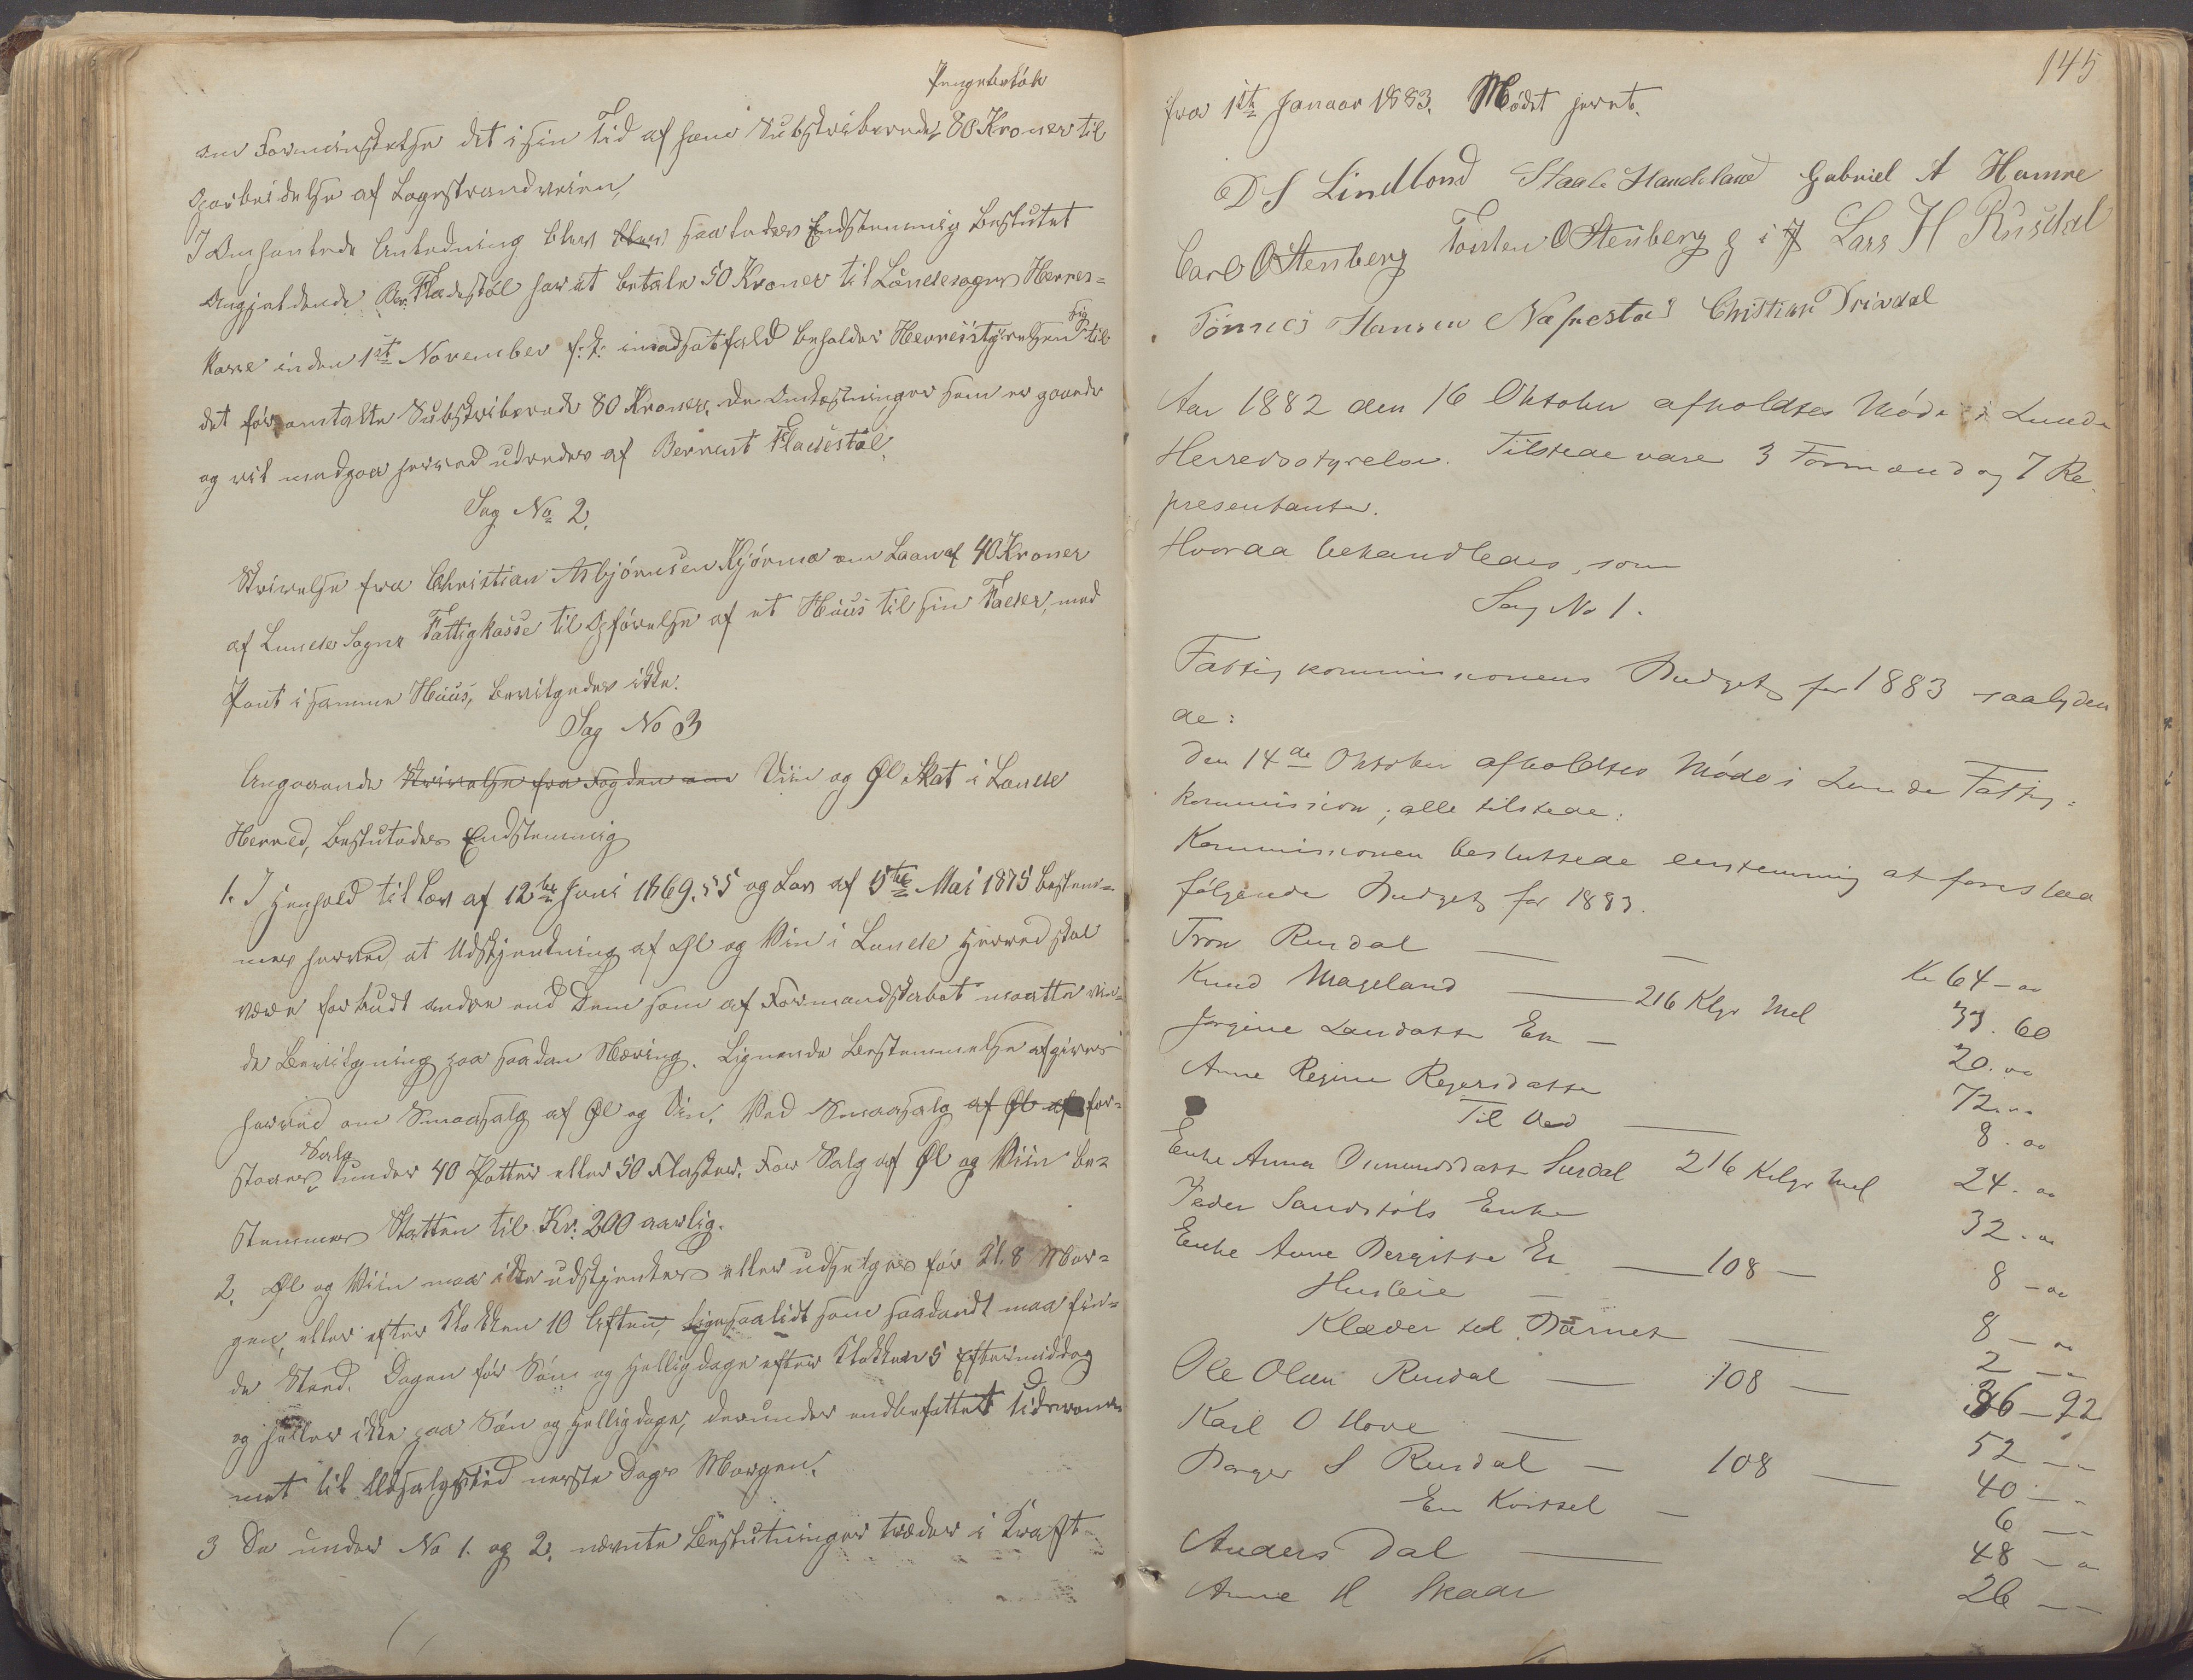 Pengebeløb
om Forminskelse det i sin Tid af ham Subskriberede 80 Kroner til
Oparbeidelse af Logestrandveien,
I Omhandlede Anledning blev blev saaledes Endstemmig Besluttet
Angjeldende Ber. Fladestøl har at betale 50 Kroner til Lundesogns Herres=
kasse inden 1st November f. A. imodsatfald beholder Herresstyrelsen sig til
det før omtalte Subskriberede 80 Kroner. De Omkostninger som er gaaede
og vil medgaa herved udredes af Berneut Fladestøl.
Sag No 2.
Skrivelse fra Christian Asbjørnsen Kjørmo om Laan af 40 Kroner
af Lunde Sogns Fattigkasse til Opførelse af et Huus til sin Fader, med
Pant i samme Huus, bevilgedes ikke.
Sag No 3
Angaaende Skrivelse fra Fogden om Viin og Øl Skat i Lunde
Herred, Besluttedes Endstemmig
1. I Henhold til Lov af 12te Juni 1869. § 5 og Lov af 5te Mai 1875 bestem=
mes herved, at Udskjenkning af Øl og Vin i Lunde Herred skal
være forbudt andre end Dem som af Formandskabet maatte vin=
de Bevilgning paa saadan Næring. Lignende Bestemmelse afgives
herved om Smaasalg af Øl og Vin. Ved Smaasalg af Øl af for=
staaes Salg under 40 Potter eller 50 Flasker. For Salg af Øl og Viin be=
stemmes Skatten til Kr. 200 aarlig.
2. Øl og Viin maa ikke udskjenkes eller udselges før Kl. 8 Mor=
gen, eller efter Klokken 10 Aften, ligesaalidt som saadandt maa fin=
de Sted. Dagen før Søn og Helligdage efter Klokken 5 Eftermiddag
og heller ikke paa Søn og Helligdage, derunder indbefattet Tidsrom
met til Udsalgstid neste Dags Morgen.
3 De under No 1. og 2. nævnte Beslutninger træder i Kraft
145
fra 1ste Januar 1883. Mødet hævet.
D S Lindland Staale Handeland Gabriel A Hamre
Carl O Stenberg Torsten O Stenberg g i J Lars H Rusdal
Tønnes Hansen Næpestad Christian Drivdal
Aar 1882 den 16 Oktober afholdtes Møde i Lunde
Herredsstyrelse. Tilstede vare 3 Formænd og 7 Re
presentanter.
Hvorda behandledes, som
Sag No 1.
Fattigkommissionens Budget for 1883 saalyden
de:
Den 14de Oktober afholdtes Møde i Lunde Fattig=
kommission; alle tilstede:
Kommissionen besluttede enstemmig at foreslaa
følgende Budget for 1883.
Tron Rusdal — — Kr 64 – oo
Knud Mageland — 216 Klgr Mel 33. 60
Jorgine Landaas En — 20. oo
Anne Regine Regersdatter 72. oo
Til Ved — 8. oo
Enke Anna Osmundsdatter Surdal 216 Kilgr Mel 24. oo
Peder Sandstøls Enke 32. oo
Enke Anne Bergitte En — 108 — 8 – oo
Husleie — 8 – oo
Klæder til Barnet — 2 – –
Ole Olsen Rusdal — 108 — 36 – 92
Karl O Hove — 52 – –
Borger S Rusdal — 108 — 40 – –
En Kvittel — 6 – –
Anders Dal — 48 – o
Anne H Skaar 26 – –